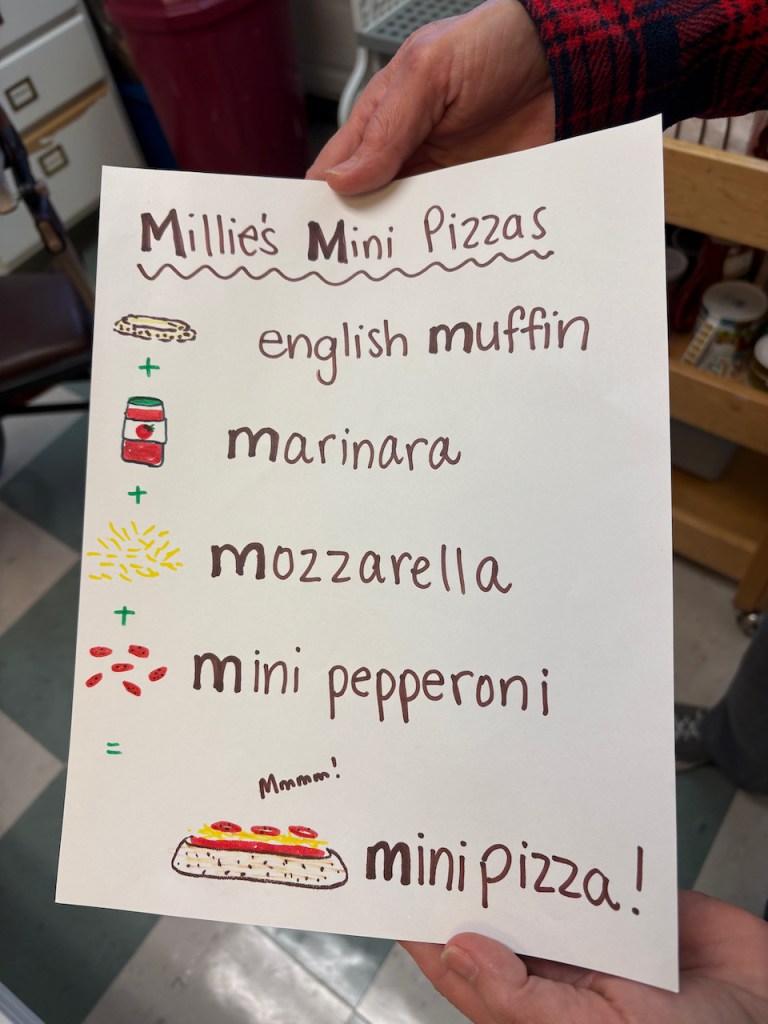 Millie's Mini Pizzas
english muffin
+
marinara
+
mozzarella
+
mini pepperoni
=
Mmmm!
mini pizza!